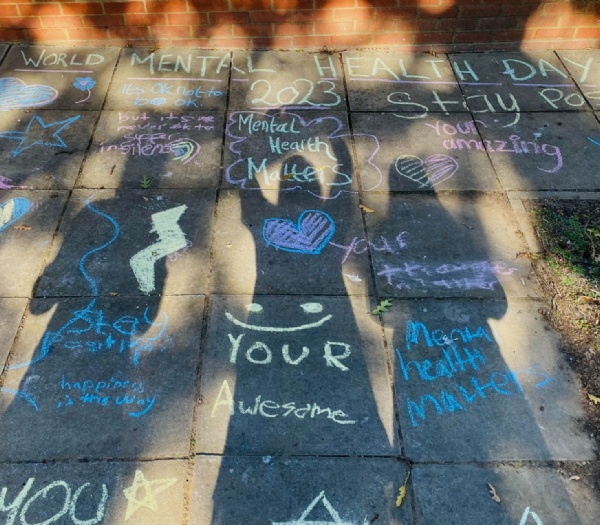 WORLD MENTAL HEALTH DAY
2023
its OK not to
be OK
Stay Pos
but its
never ok to
suffer
in silence
Mental
Health
Matters
your
amazing
your
Stay
Positive
happiness
is this way
YOUR
Awesome
Mental
health
Matters
YOU